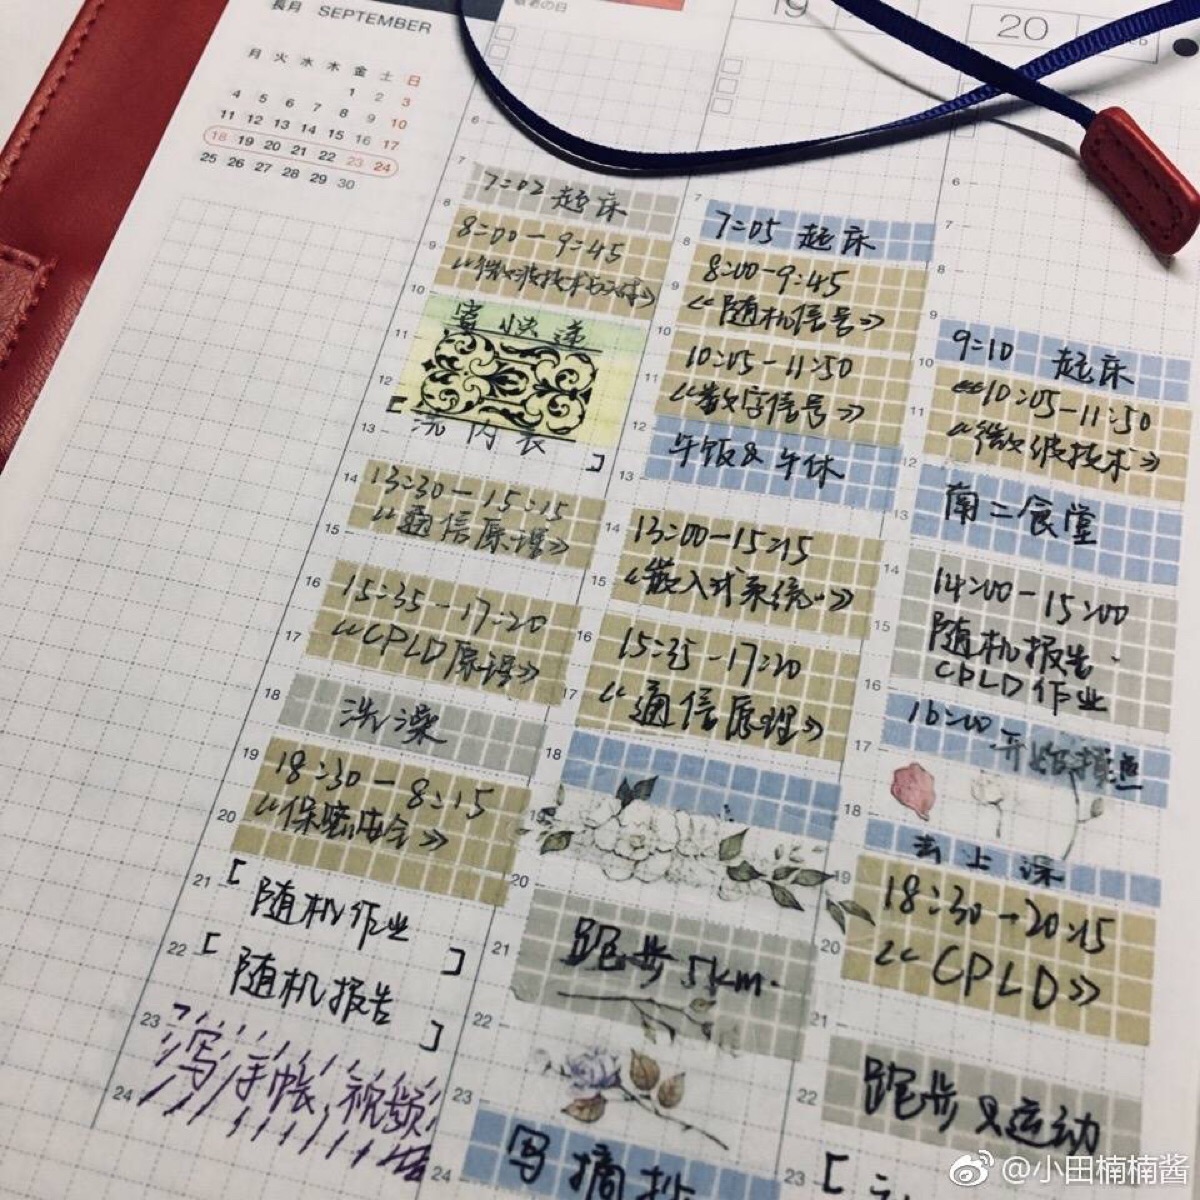 長月 SEPTEMBER
月 火 水 木 金 土 日
1 2 3
4 5 6 7 8 9 10
11 12 13 14 15 16 17
18 19 20 21 22 23 24
25 26 27 28 29 30
敬老の日
19
20
6
7
8
9
10
11
12
13
14
15
16
17
18
19
20
21
22
23
24
7:02 起床
8:00-9:45
寄快递
洗内衣
13:30-15:15
《通信原理》
15:35-17:20
《CPLD原理》
洗澡
18:30-8:15
《保密安全》
随机作业
随机报告
写手帐,视频
7
8
9
10
11
12
13
14
15
16
17
18
19
20
21
22
23
24
7:05 起床
8:00-9:45
《随机信号》
10:05-11:50
《数字信号》
午饭&午休
13:00-15:15
《嵌入式系统》
15:35-17:20
《通信原理》
跑步5km.
写摘抄
6
7
8
9
10
11
12
13
14
15
16
17
18
19
20
21
22
23
9:10 起床
10:05-11:50
《微波技术》
南二食堂
14:00-15:00
随机报告.
CPLD作业
16:00
去上课
18:30-20:15
《CPLD》
跑步&运动
@小田楠楠酱